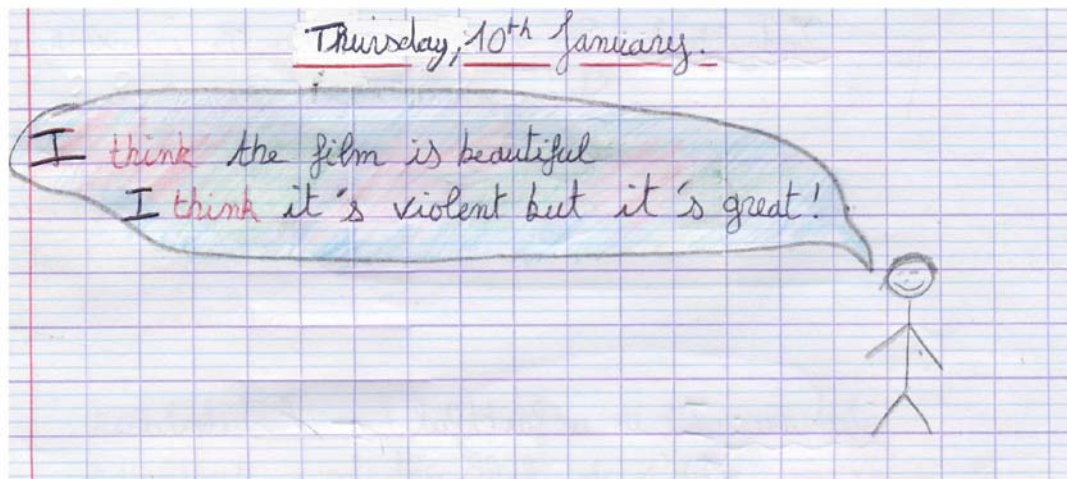 Thursday, 10th January.
I think the film is beautiful
I think it's violent but it's great!